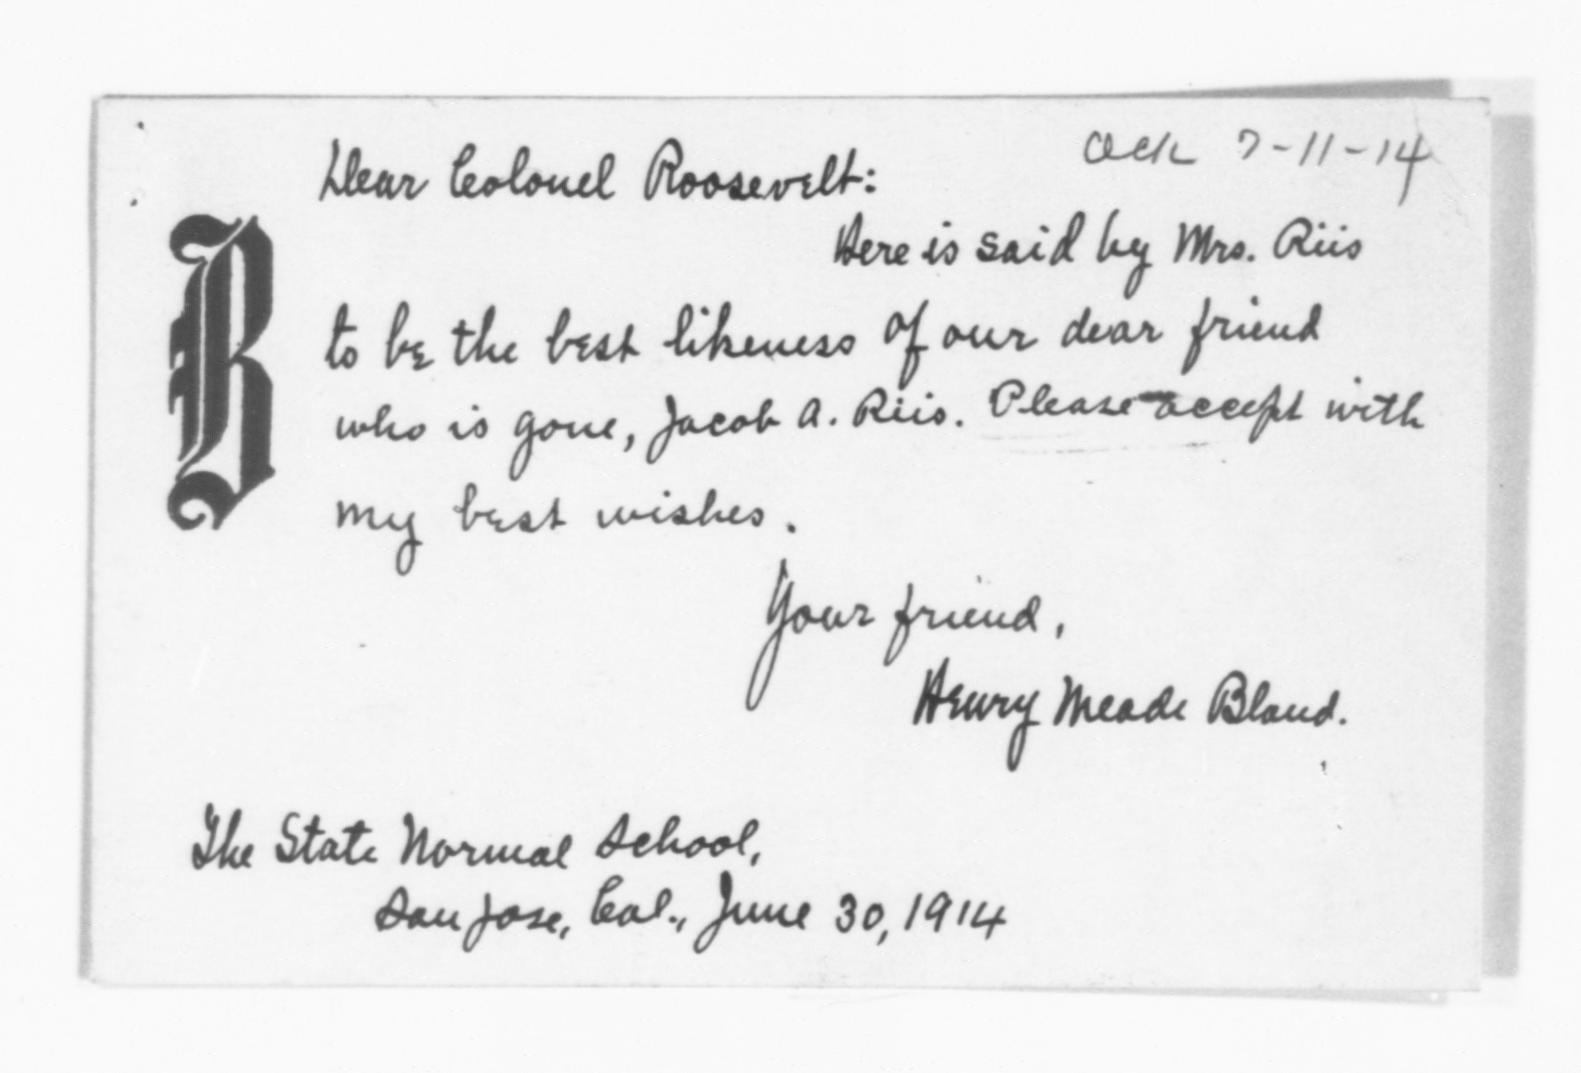 Ack 7-11-14
Dear Colonel Roosevelt:
Here is said by Mrs. Riis
to be the best likeness of our dear friend
who is gone, Jacob A. Riis. Please accept with
my best wishes.
Your friend,
Henry Meade Bland.
The State Normal School,
San Jose, Cal., June 30, 1914
B